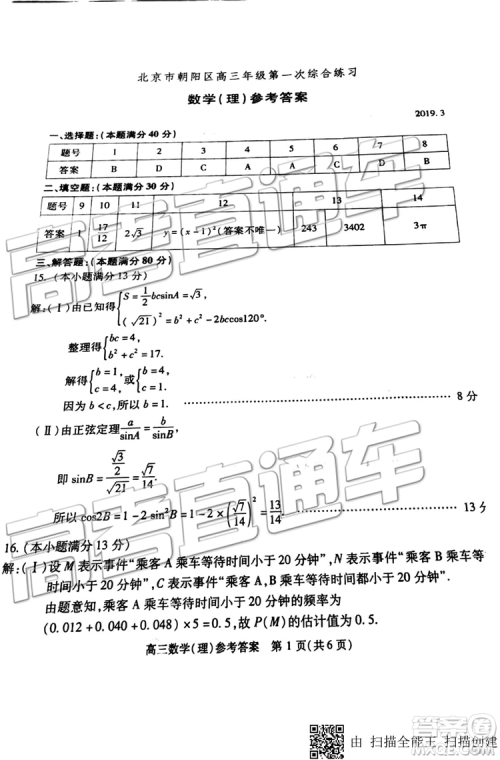 北京市朝阳区高三年级第一次综合练习
数学(理)参考答案
2019.3
一、选择题:(本题满分 40 分)
题号 1 2 3 4 5 6 7 8
答案 B D C A B D
二、填空题:(本题满分 30 分)
题号 9 10 11 12 13 14
答案 1 17/12 2√3 y=(x-1)²(答案不唯一) 243 3402 3π
三、解答题:(本题满分 80 分)
15. (本小题满分 13 分)
解:(Ⅰ)由已知得{S=1/2 bcsinA=√3,
(√21)²=b²+c²-2bccos120°.
整理得{bc=4,
b²+c²=17.
解得{b=1, c=4, 或{b=4, c=1.
因为 b<c,所以 b=1. 8 分
(Ⅱ)由正弦定理 a/sinA=b/sinB,
即 sinB=(√3/2)/√21=√7/14.
所以 cos2B=1-2sin²B=1-2×(√7/14)²=13/14. 13 分
16. (本小题满分 13 分)
解:(Ⅰ)设 M 表示事件“乘客 A 乘车等待时间小于 20 分钟”,N 表示事件“乘客 B 乘车等待
时间小于 20 分钟”,C 表示事件“乘客 A,B 乘车等待时间都小于 20 分钟”.
由题意知,乘客 A 乘车等待时间小于 20 分钟的频率为
(0.012+0.040+0.048)×5=0.5,故 P(M)的估计值为 0.5.
高三数学(理)参考答案 第 1 页(共 6 页)
由 扫描全能王 扫描创建
高考直通车
高考直通车
作业帮